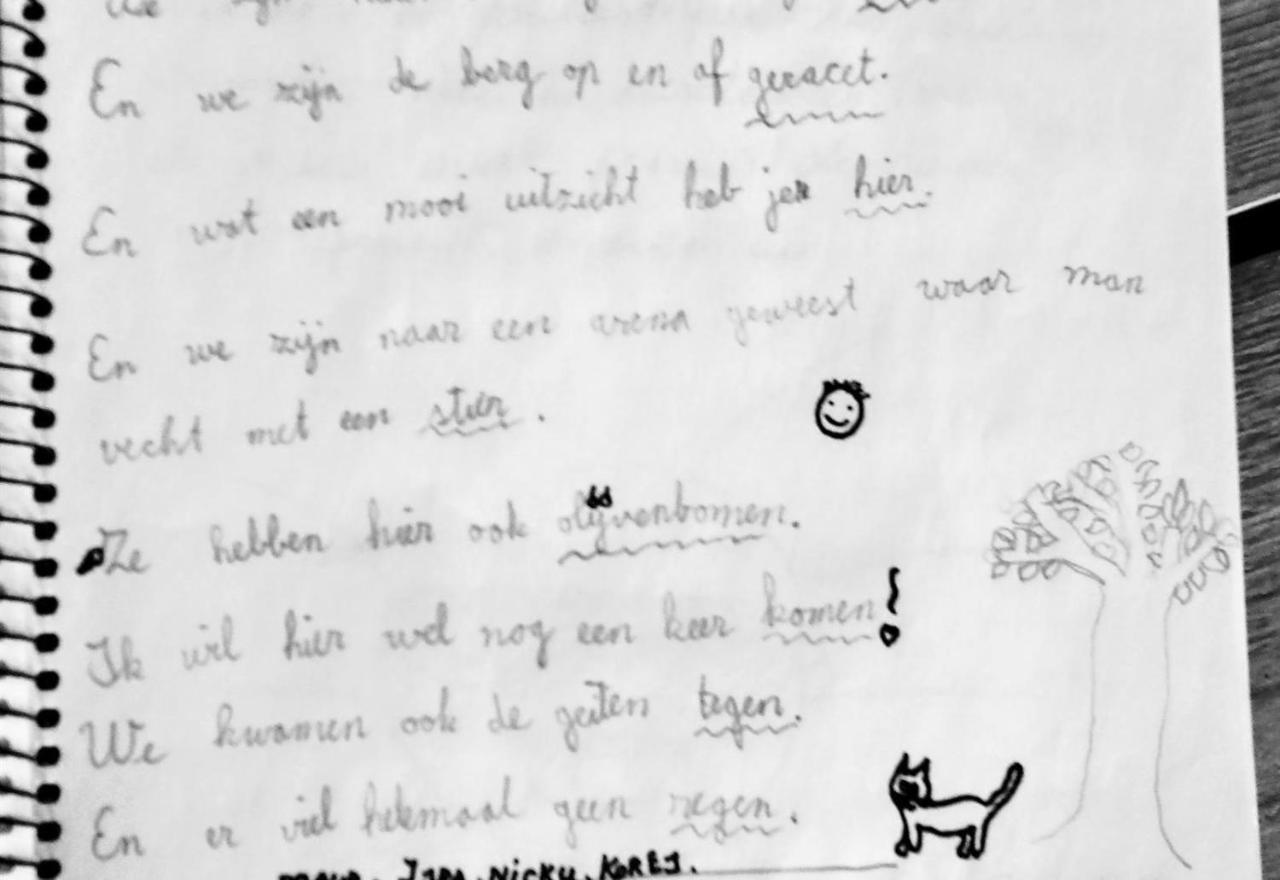 En we zijn de berg op en af geracet.
En wat een mooi uitzicht heb je hier.
En we zijn naar een arena geweest waar man
vecht met een stier.
Ze hebben hier ook olijvenbomen.
Ik wil hier wel nog een keer komen!
We kwamen ook de geiten tegen.
En er viel helemaal geen regen.
Nicky.